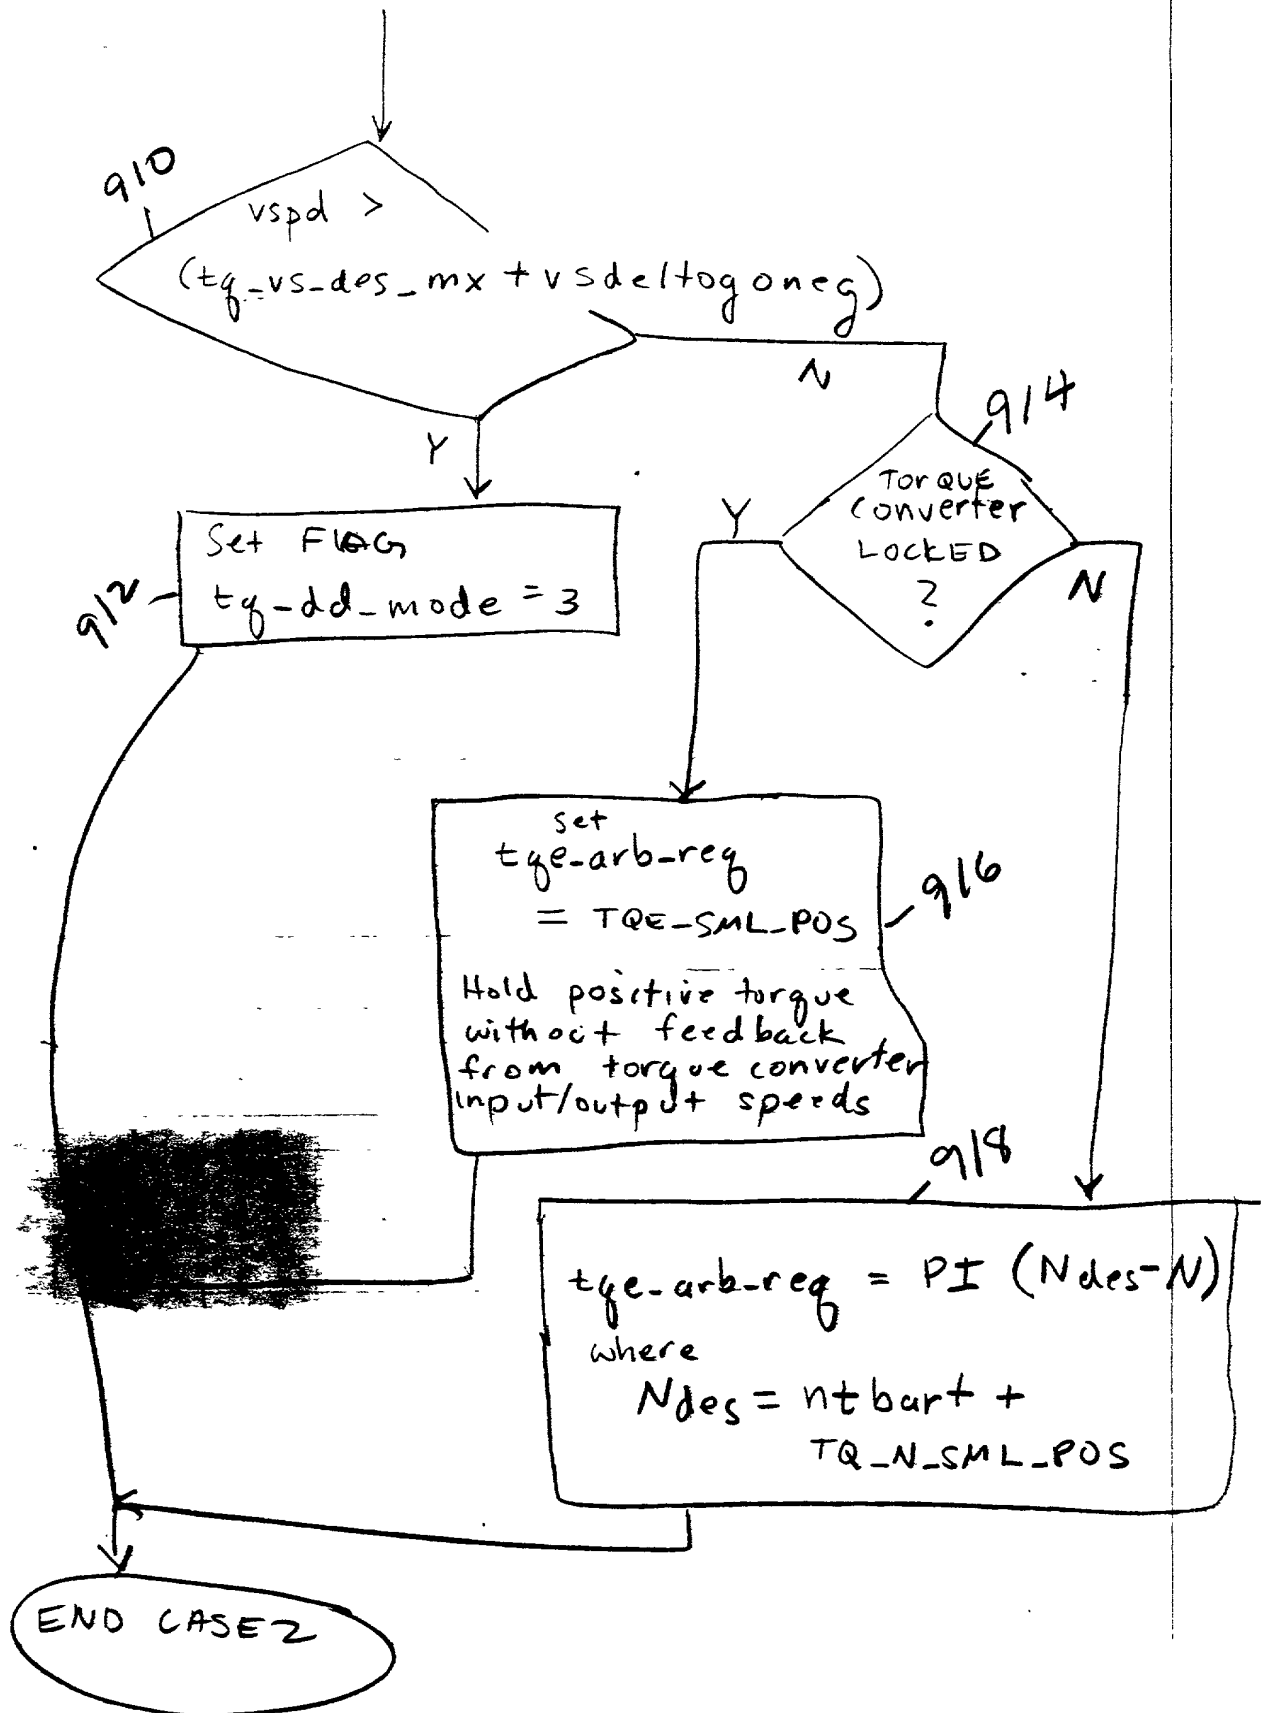 910
vspd >
(tq_vs_des_mx + vsdeltogoneg)
N
Y
914
Torque
Converter
LOCKED
?
Y
N
Set FLAG
tq_dd_mode = 3
912
set
tqe_arb_req
= TQE_SML_POS
916
Hold positive torque
without feedback
from torque converter
input/output speeds
918
tqe_arb_req = PI (Ndes-N)
where
Ndes = ntbart +
TQ_N_SML_POS
END CASE2